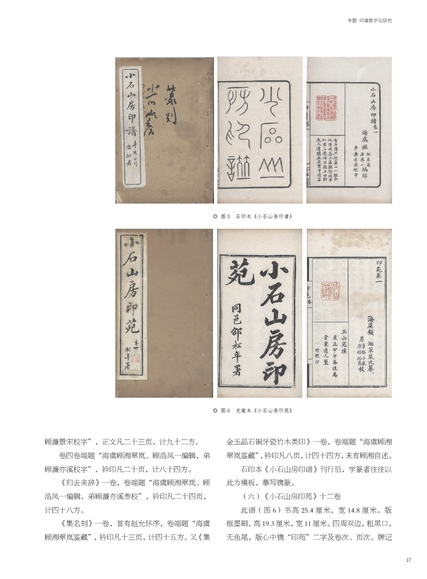 专题·印谱数字化研究
小石山房印谱
篆刻
小石山房
小石山房印谱
小石山房印谱卷一
海虞顾
图 5　石印本《小石山房印谱》
小石山房印苑
小石山房印
苑
同邑邵松年署
印苑卷一
海虞顾
图 6　光绪本《小石山房印苑》
顾濂景宋校字”，正文凡二十三页，计九十二方。
卷四卷端题“海虞顾湘翠岚、顾浩凤一编辑，弟
顾濂亦溪校字”，钤印凡二十页，计八十四方。
《归去来辞》一卷，卷端题“海虞顾湘翠岚、顾
浩凤一编辑，弟顾濂亦溪参校”，钤印凡二十四页，
计四十八方。
《集名刻》一卷，首有赵允怀序，卷端题“海虞
顾湘翠岚鉴藏”，钤印凡十三页，计四十五方。又《集
金玉晶石铜牙瓷竹木类印》一卷，卷端题“海虞顾湘
翠岚鉴藏”，钤印凡八页，计四十四方，末有顾湘自述。
石印本《小石山房印谱》刊行后，学篆者往往以
此为模板，摹写镌篆。
（六）《小石山房印苑》十二卷
此谱（图 6）书高 25.4 厘米，宽 14.8 厘米。版
框墨刷，高 19.3 厘米，宽 11 厘米，四周双边，粗黑口，
无鱼尾，版心中镌“印苑”二字及卷次、页次。牌记
17